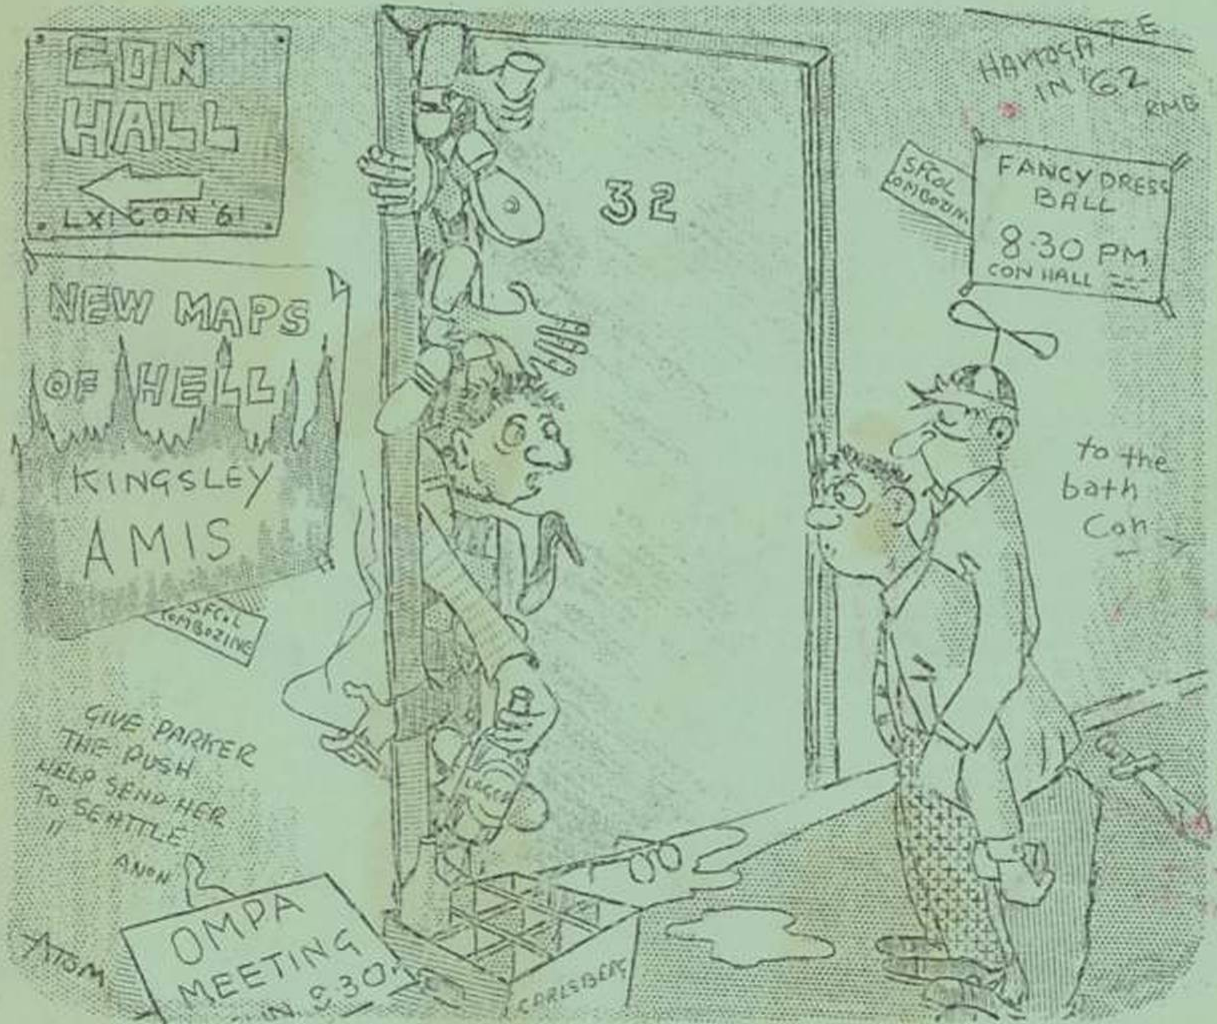 CON
HALL
LXICON '61
NEW MAPS
OF HELL
KINGSLEY
AMIS
SFCoL
COMBOZINE
GIVE PARKER
THE PUSH
HELP SEND HER
TO SEATTLE
"
ANON
OMPA
MEETING
8.30
ATOM
32
LAGER
CARLSBERG
HARROGATE
IN '62
RMB
SFCoL
COMBOZINE
FANCY DRESS
BALL
8.30 PM
CON HALL
to the
bath
Con